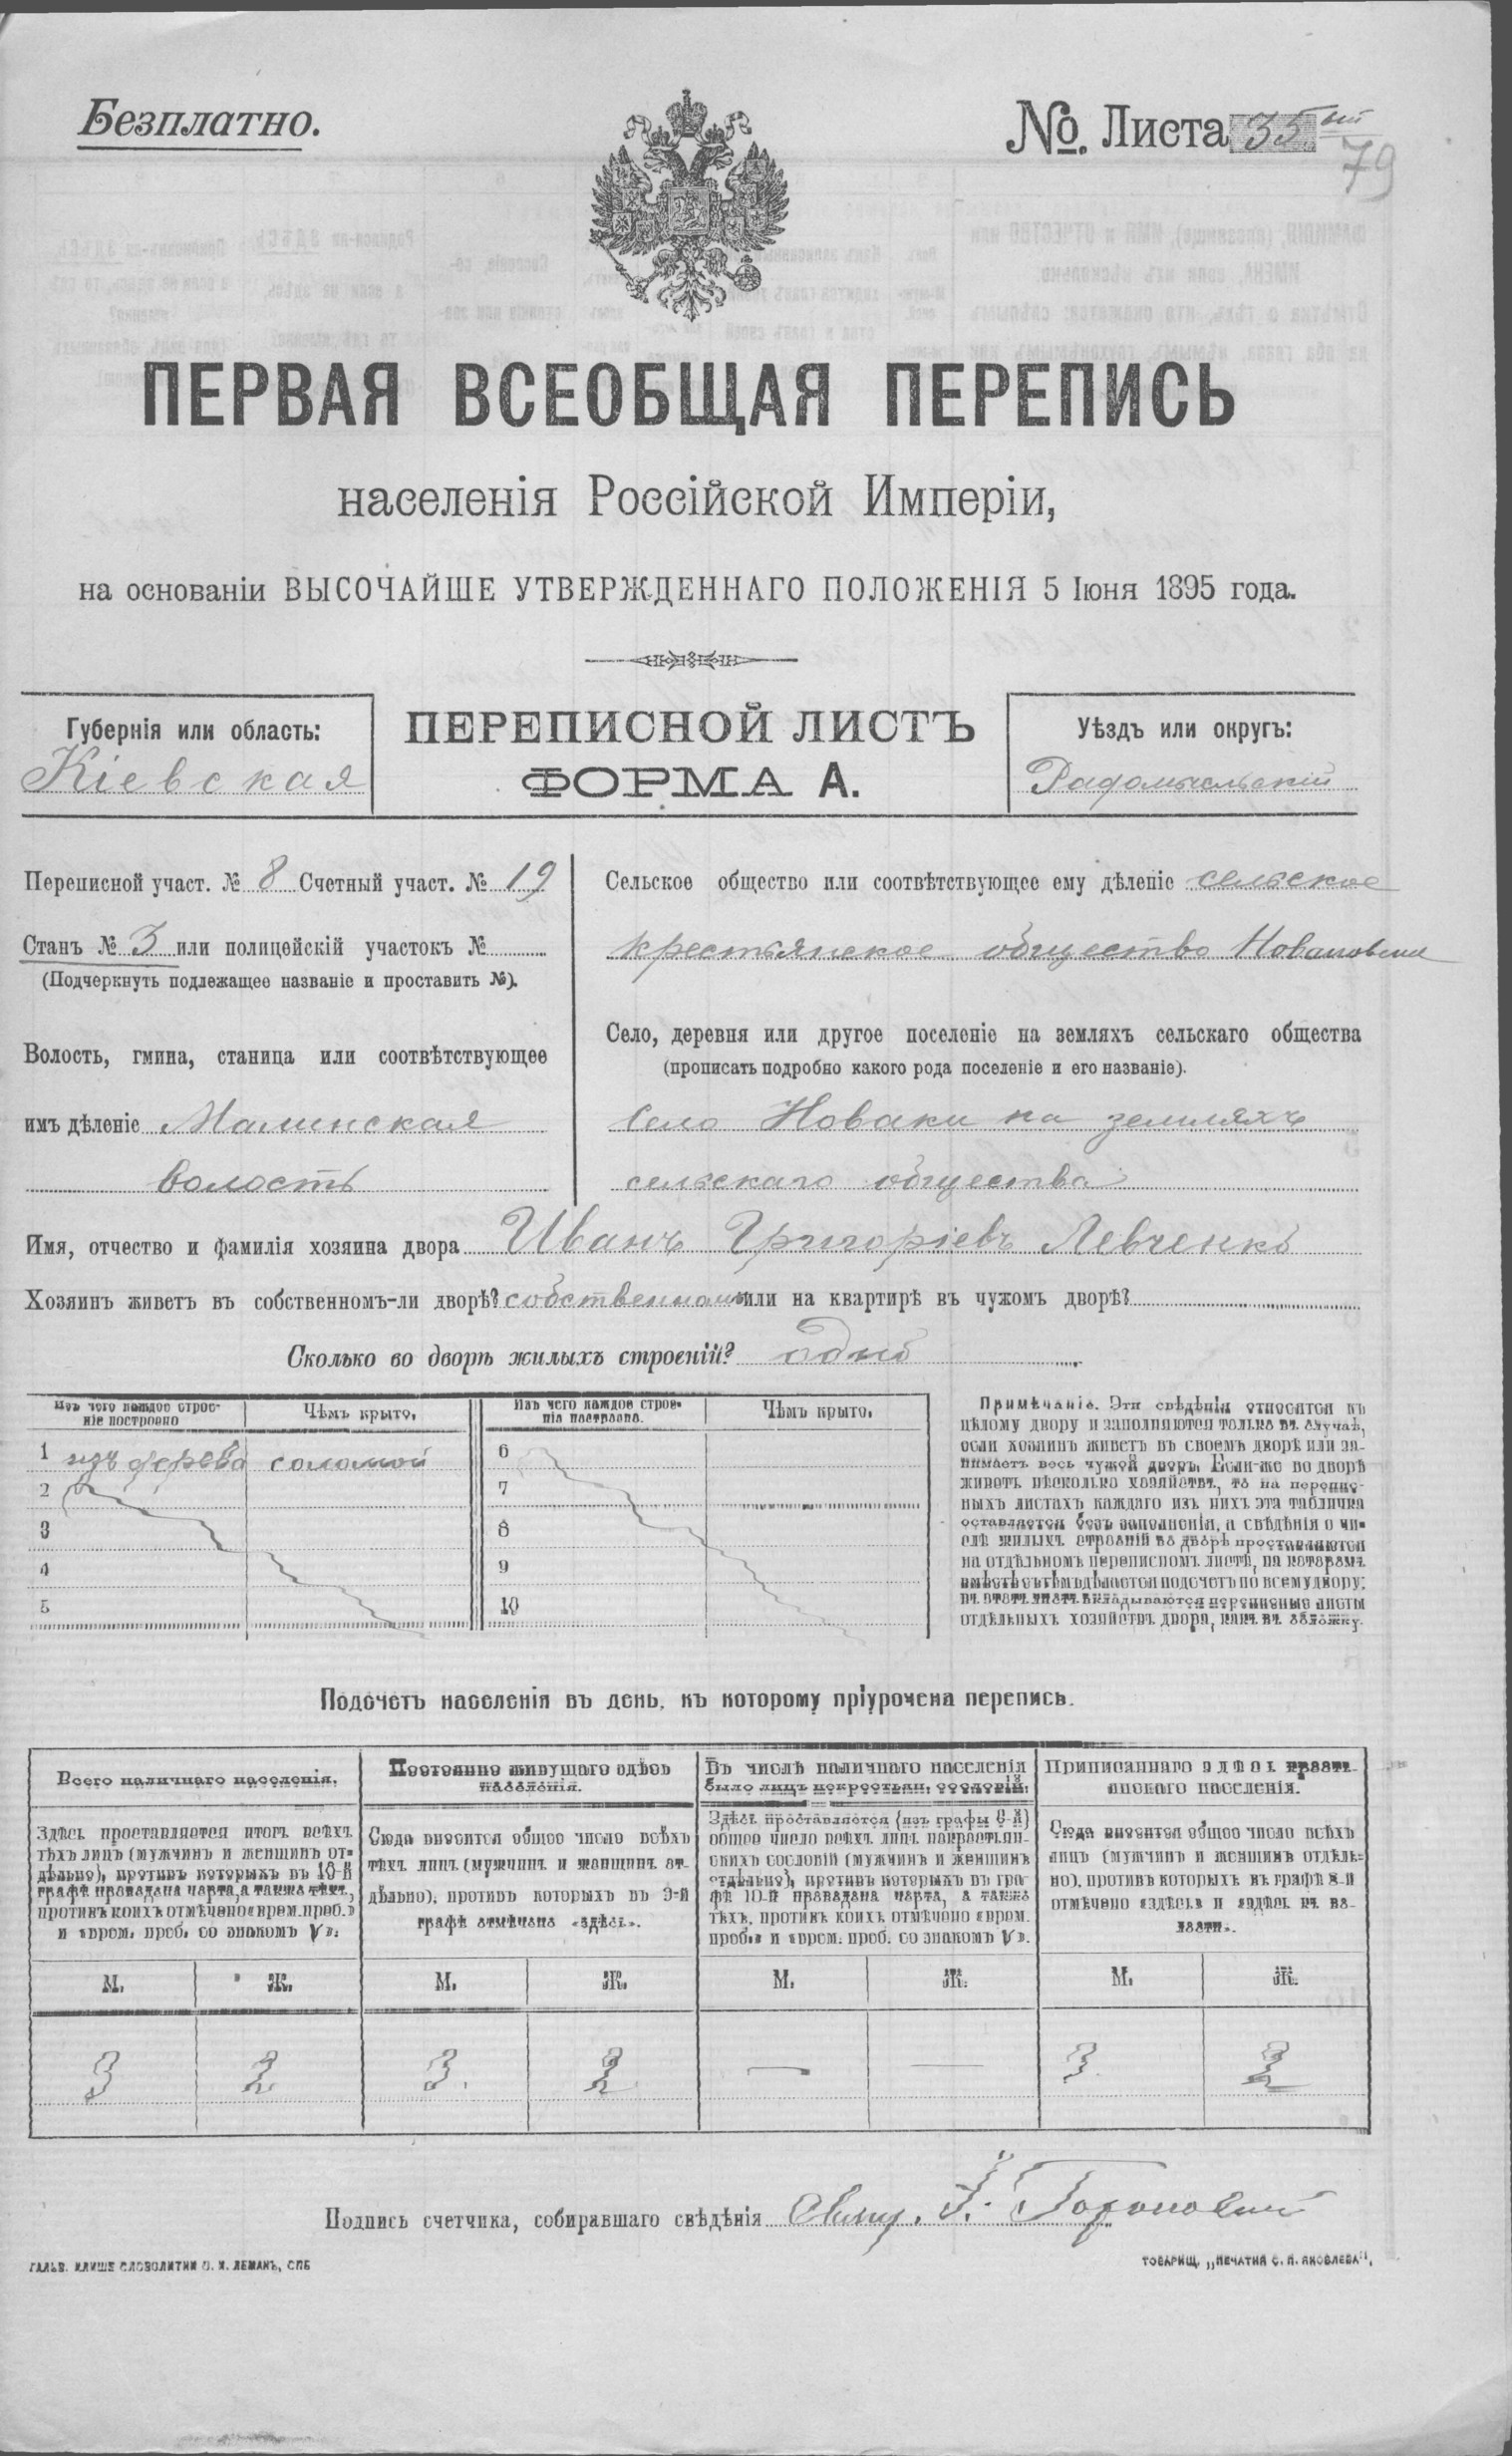 Безплатно.
№. Листа 35ый
79
ПЕРВАЯ ВСЕОБЩАЯ ПЕРЕПИСЬ
населенія Россійской Имперіи,
на основаніи ВЫСОЧАЙШЕ УТВЕРЖДЕННАГО ПОЛОЖЕНІЯ 5 Іюня 1895 года.
Губернія или область:
Кіевская
ПЕРЕПИСНОЙ ЛИСТЪ
ФОРМА А.
Уѣздъ или округъ:
Радомысльскій
Переписной участ. № 8 Счетный участ. № 19
Станъ № 3 или полицейскій участокъ №
(Подчеркнуть подлежащее названіе и проставить №).
Волость, гмина, станица или соотвѣтствующее
имъ дѣленіе Малинская
волость
Сельское общество или соотвѣтствующее ему дѣленіе сельское
крестьянское общество
Село, деревня или другое поселеніе на земляхъ сельскаго общества
(прописать подробно какого рода поселеніе и его названіе).
Село Новаки на земляхъ
сельскаго общества
Имя, отчество и фамилія хозяина двора Иванъ Григоріевъ Левченко
Хозяинъ живетъ въ собственномъ-ли дворѣ? собственномъ или на квартирѣ въ чужомъ дворѣ?
Сколько во дворѣ жилыхъ строеній? одно
Изъ чего каждое строе-
ніе построено
Чѣмъ крыто.
Изъ чего каждое строе-
ніе построено.
Чѣмъ крыто.
1 изъ дерева соломой
2
3
4
5
6
7
8
9
10
Примѣчаніе. Эти свѣдѣнія относятся къ
цѣлому двору и заполняются только въ случаѣ,
если хозяинъ живетъ въ своемъ дворѣ или за-
нимаетъ весь чужой дворъ. Если-же во дворѣ
живетъ нѣсколько хозяйствъ, то на перепис-
ныхъ листахъ каждаго изъ нихъ эта табличка
оставляется безъ заполненія, а свѣдѣнія о чи-
слѣ жилыхъ строеній во дворѣ проставляются
на отдѣльномъ переписномъ листѣ, на которомъ
вмѣстѣ съ тѣмъ дѣлается подсчетъ по всему двору;
въ этотъ листъ вкладываются переписные листы
отдѣльныхъ хозяйствъ двора, какъ въ обложку.
Подсчетъ населенія въ день, къ которому пріурочена перепись.
Всего наличнаго населенія.
Здѣсь проставляется итогъ всѣхъ
тѣхъ лицъ (мужчинъ и женщинъ от-
дѣльно), противъ которыхъ въ 10-й
графѣ проведена черта, а также тѣхъ,
противъ коихъ отмѣчено «врем. преб.»
и «врем. преб. со знакомъ V».
Постоянно живущаго здѣсь
населенія.
Сюда вносится общее число всѣхъ
тѣхъ лицъ (мужчинъ и женщинъ от-
дѣльно), противъ которыхъ въ 9-й
графѣ отмѣчено «здѣсь».
Въ числѣ наличнаго населенія
было лицъ некрестьян. сословій:
Здѣсь проставляется (изъ графы 6-й)
общее число всѣхъ лицъ некрестьян-
скихъ сословій (мужчинъ и женщинъ
отдѣльно), противъ которыхъ въ гра-
фѣ 10-й проведена черта, а также
тѣхъ, противъ коихъ отмѣчено «врем.
преб.» и «врем. преб. со знакомъ V».
Приписаннаго здѣсь кресть-
янскаго населенія.
Сюда вносится общее число всѣхъ
лицъ (мужчинъ и женщинъ отдѣль-
но), противъ которыхъ въ графѣ 8-й
отмѣчено «здѣсь» и «здѣсь къ во-
лости».
М. Ж. М. Ж. М. Ж. М. Ж.
3 2 3. 2 — — 3. 2
Подпись счетчика, собиравшаго свѣдѣнія
ГАЛЬВ. КЛИШЕ СЛОВОЛИТНИ О. И. ЛЕМАНЪ, СПБ
ТОВАРИЩ. „ПЕЧАТНЯ С. П. ЯКОВЛЕВА",